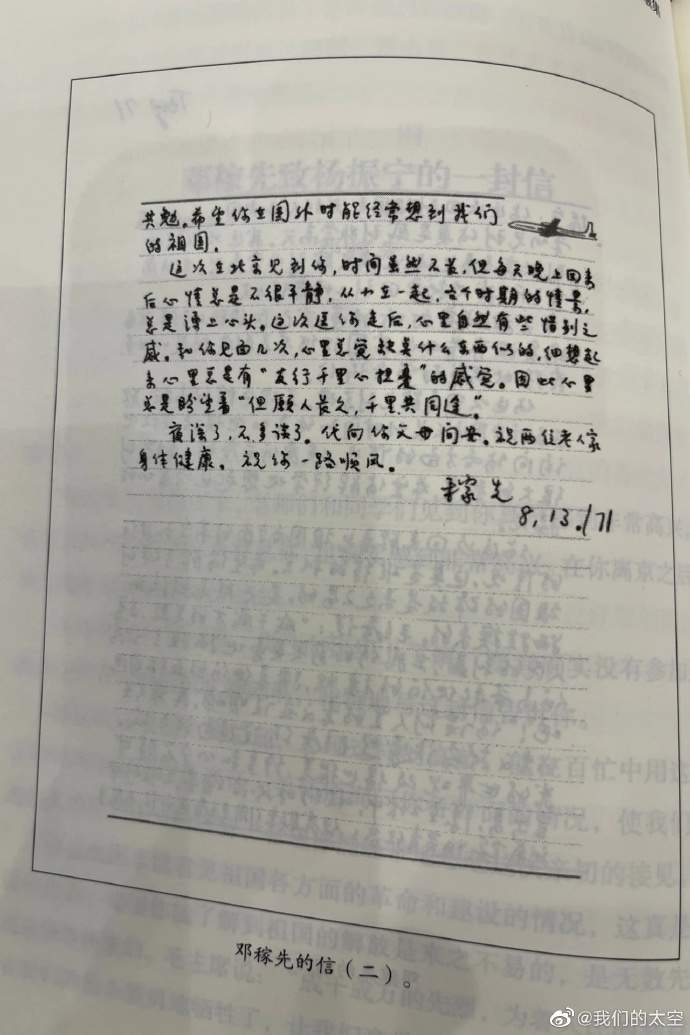 共勉。希望你在国外时能经常想到我们
的祖国。
这次在北京见到你，时间虽然不长，但每天晚上回来
后心情总是不很平静，从小在一起，各个时期的情景，
总是涌上心头。这次送你走后，心里自然有些惜别之
感。和你见面几次，心里总觉缺点什么东西似的，细想起
来心里总是有“友行千里心担忧”的感觉。因此心里
总是盼望着“但愿人长久，千里共同途”。
夜深了，不多谈了。代向你父母问安。祝两位老人家
身体健康。祝你一路顺风。
稼先
8，13./71
邓稼先的信（二）。
@我们的太空